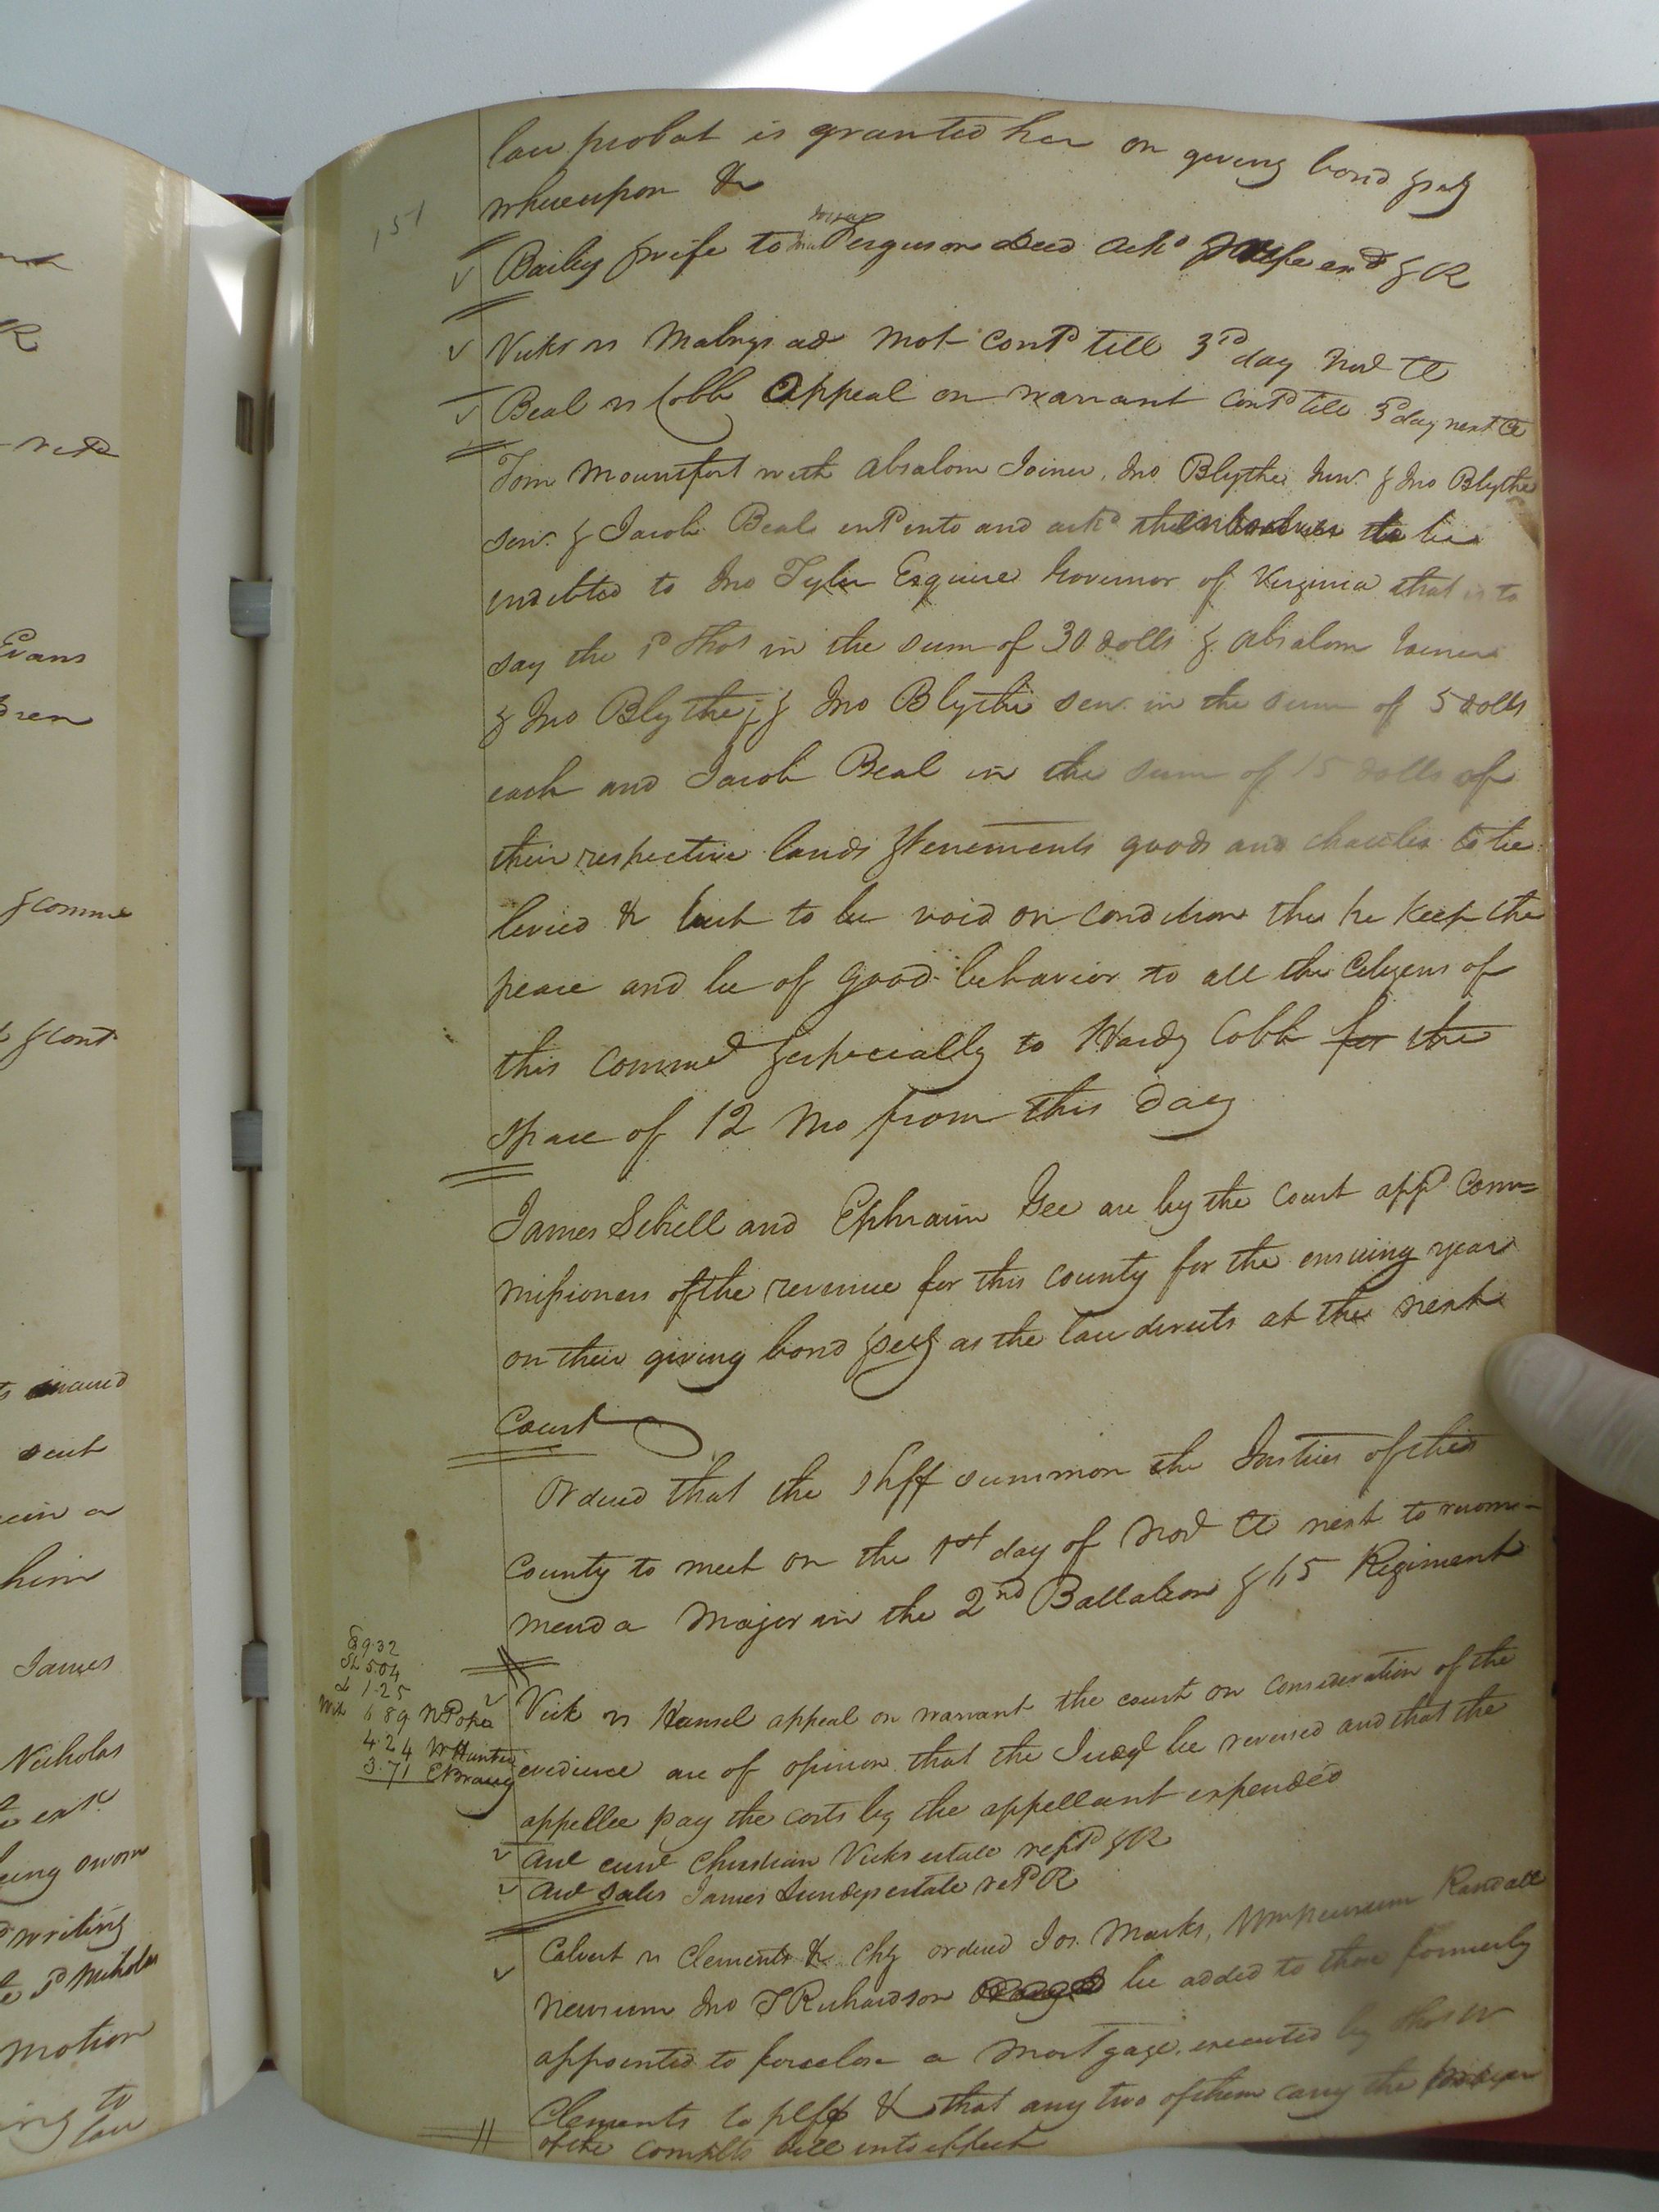 law probat is granted her on giving bond & secy
whereupon &c
151
Bailey & wife to Ferguson deed ackd & wife exd & R
Vicks vs Malrys ad mot contd till 3rd day Nod Ct
Beal vs Cobb Appeal on warrant contd till 3d day next Ct
Tom Mountfort with Absalom Joiner, Jno Blythe Junr. & Jno Blythe
senr. & Jacob Beale entd into and ackd themselves to be
indebted to Jno Tyler Esquire Governor of Virginia that is to
say the sd Thos in the sum of 30 dolls & Absalom Joiner
& Jno Blythe j & Jno Blythe senr. in the sum of 5 dolls
each and Jacob Beal in the sum of 15 dolls of
their respective lands & tenements goods and chattles to be
levied &c but to be void on condition the he keep the
peace and be of good behavior to all the Citizens of
this commd & especially to Hardy Cobb for the
space of 12 Mo from this day
James Sebrell and Ephraim Gee are by the Court appd Com=
missioners of the revenue for this county for the ensuing year
on their giving bond & secy as the law directs at the next
Court
Ordered that the shff summon the Justices of this
County to meet on the 1st day of Nod Ct next to recom-
mend a Major in the 2nd Battalion & 65 Regiment
9.32
Sh 5.04
1.25
Wit 6 89 N Pope
4.24 W Hunter
3.71 E Bracy
Vick vs Hansel appeal on warrant the court on consideration of the
evidence are of opinion that the Judgt be reversed and that the
appellee pay the costs by the appellant expended
Aud curt Christian Vicks estate retd & R
Act sales James estate retd R
Calvert vs Clements &c Chy ordered Jos. Marks, Wm Newsum Randall
Newsum Jno T Richardson be added to those formerly
appointed to foreclose a Mortgage executed by Thos W
Clements to pltff & that any two of them carry the
of the complts bill into effect
R
Evans
& comme
& cont
sent
him
James
Nicholas
being sworn
writing
motion
to
law